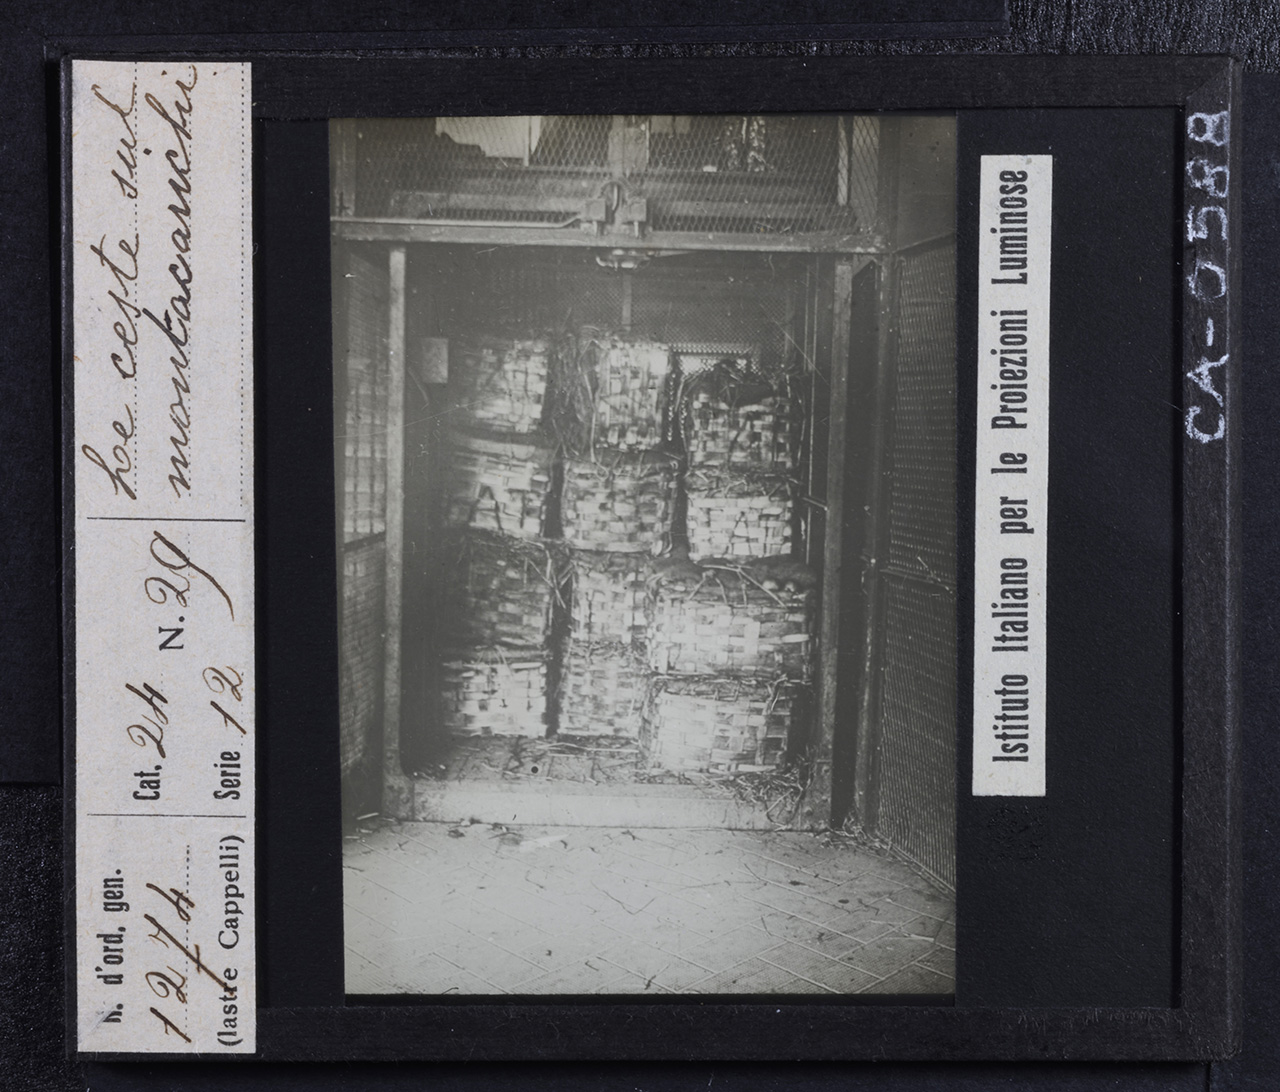 Le ceste sul
montacarichi
Cat. 24 N. 29
Serie 12
N. d'ord. gen.
1274
(lastre Cappelli)
Istituto Italiano per le Proiezioni Luminose
CA-0588